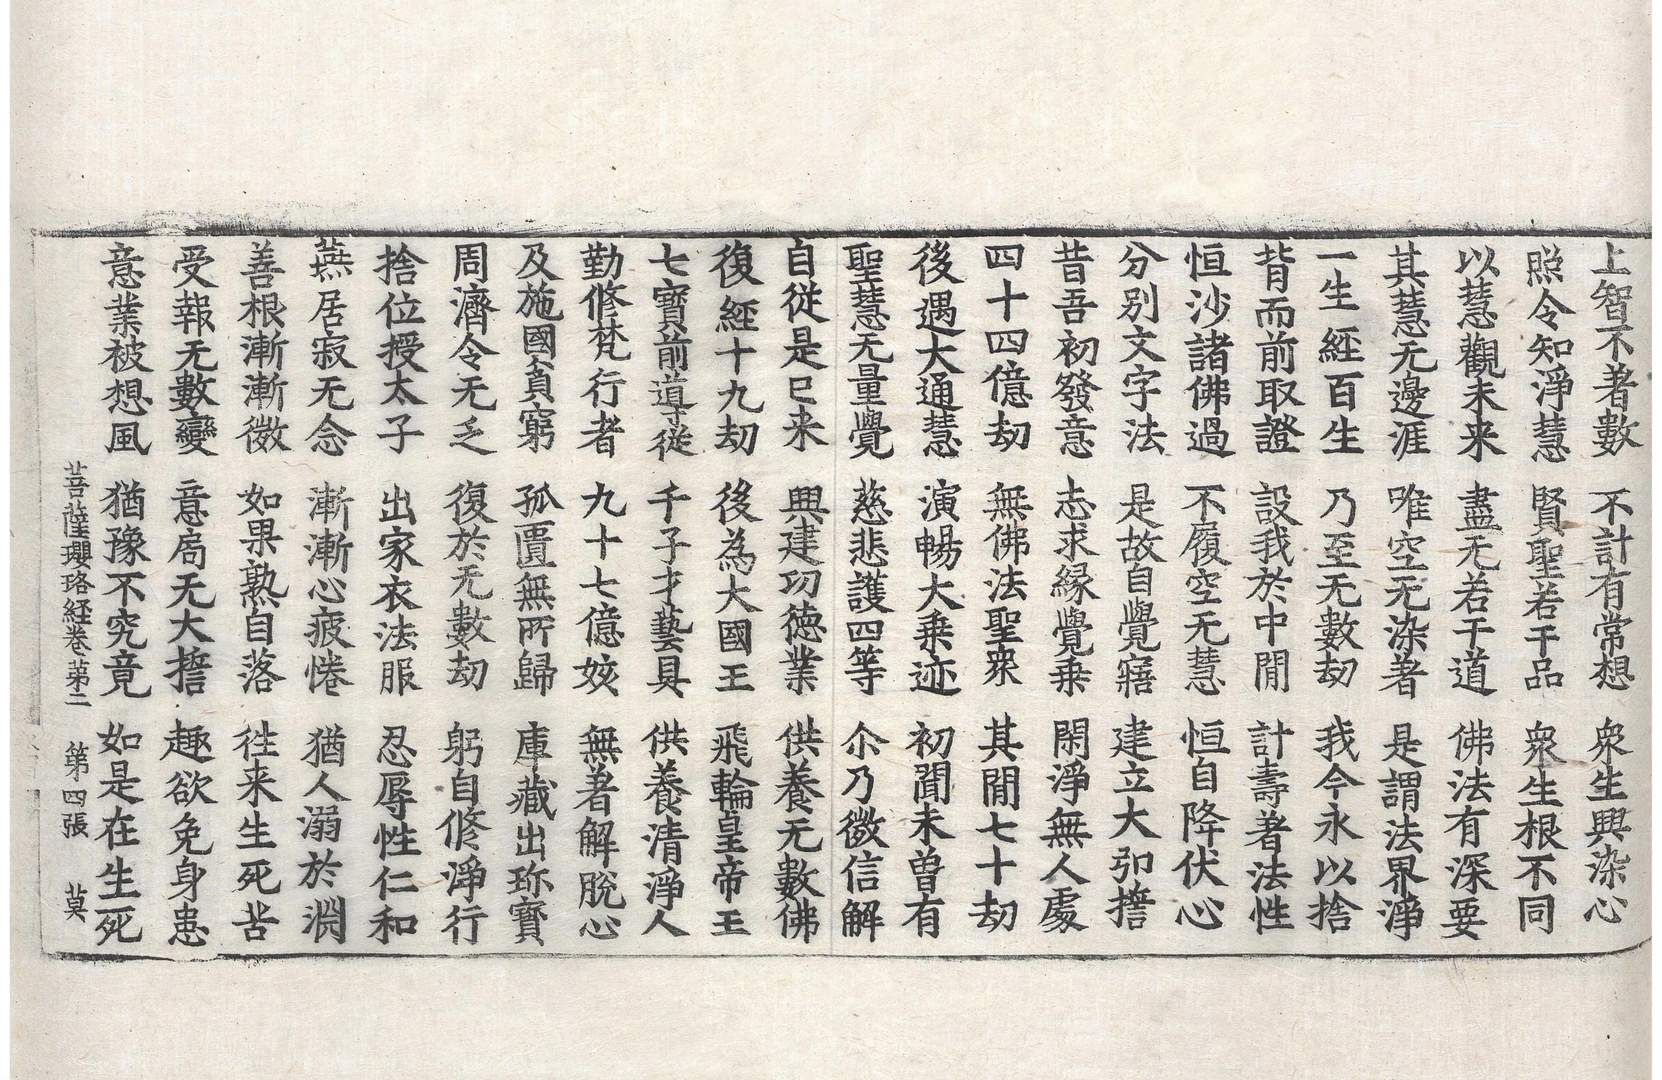 上智不著數　不計有常想　衆生興染心
照令知淨慧　賢聖若干品　衆生根不同
以慧觀未来　盡无若干道　佛法有深要
其慧无邊涯　唯空无染著　是謂法界淨
一生經百生　乃至无數劫　我今永以捨
背而前取證　設我於中閒　計壽著法性
恒沙諸佛過　不履空无慧　恒自降伏心
分別文字法　是故自覺寤　建立大弘擔
昔吾初發意　志求緣覺乗　閑淨無人處
四十四億劫　無佛法聖衆　其閒七十劫
後遇大通慧　演暢大乗迹　初聞未曽有
聖慧无量覺　慈悲護四等　尒乃微信解
自従是已来　興建功德業　供養无數佛
復經十九劫　後為大國王　飛輪皇帝王
七寶前導従　千子才藝具　供養清淨人
勤修梵行者　九十七億姟　無著解脫心
及施國貧窮　孤匱無所歸　庫藏出珎寳
周濟令无乏　復於无數劫　躬自修淨行
捨位授太子　出家衣法服　忍辱性仁和
燕居寂无念　漸漸心疲惓　猶人溺於淵
善根漸漸微　如果熟自落　徃来生死苦
受報无數變　意局无大擔　趣欲免身患
意業被想風　猶豫不究竟　如是在生死
菩薩瓔珞經卷苐二　第四張　莫